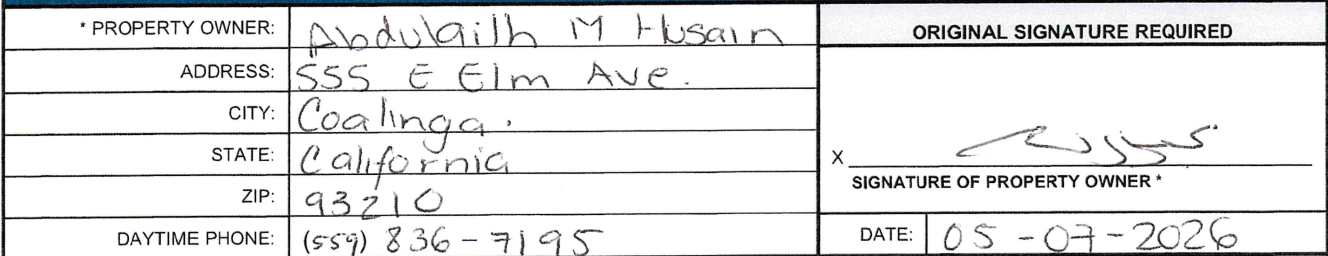 * PROPERTY OWNER: Abdulailh M Husain
ADDRESS: 555 E Elm Ave.
CITY: Coalinga.
STATE: California
ZIP: 93210
DAYTIME PHONE: (559) 836-7195
ORIGINAL SIGNATURE REQUIRED
X
SIGNATURE OF PROPERTY OWNER *
DATE: 05-07-2026